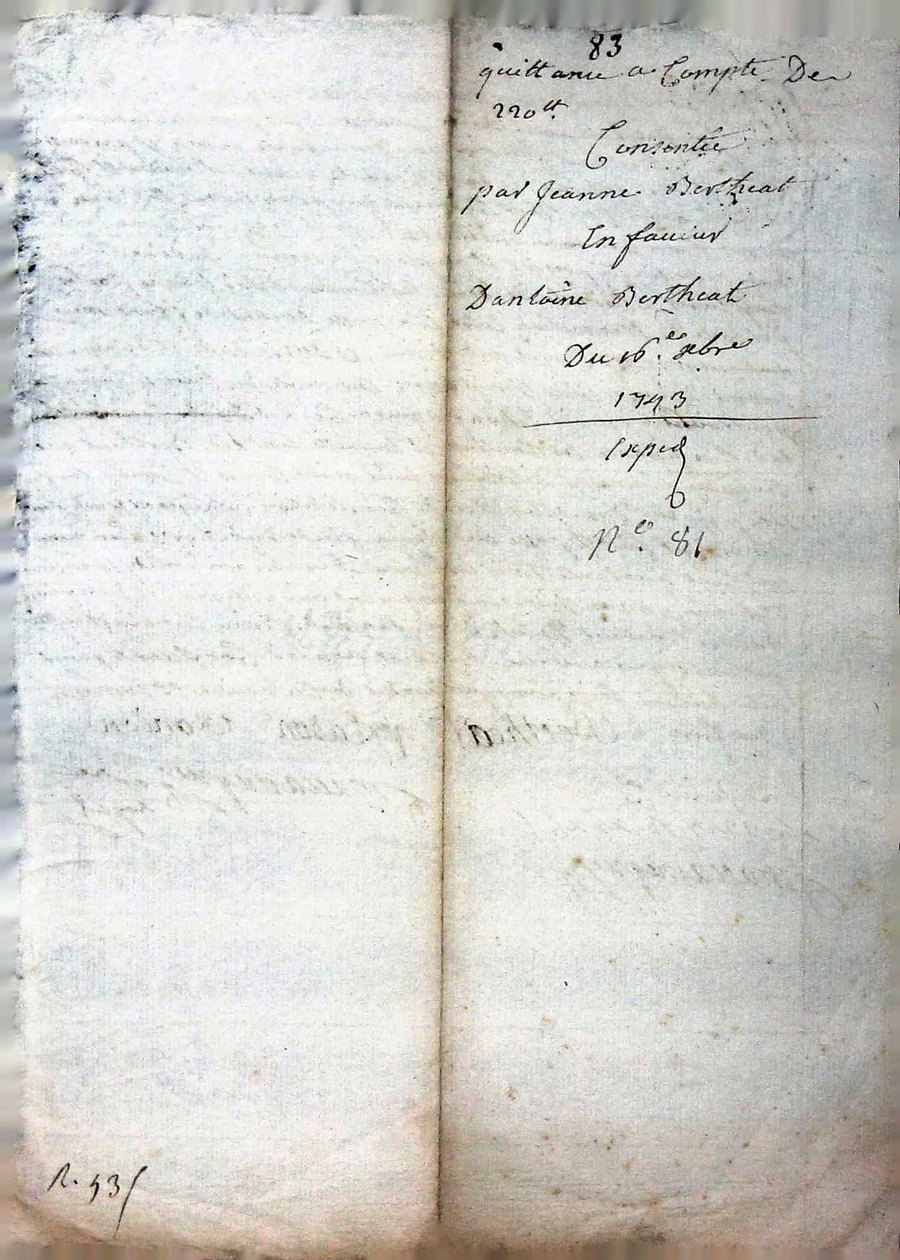 83
quittance a Compte De
220 lt.
Consentie
par Jeanne Bertheat
En faveur
Dantoine Bertheat
Du 16.e xbre
1743
Exped
N.o 81
R. 53 s